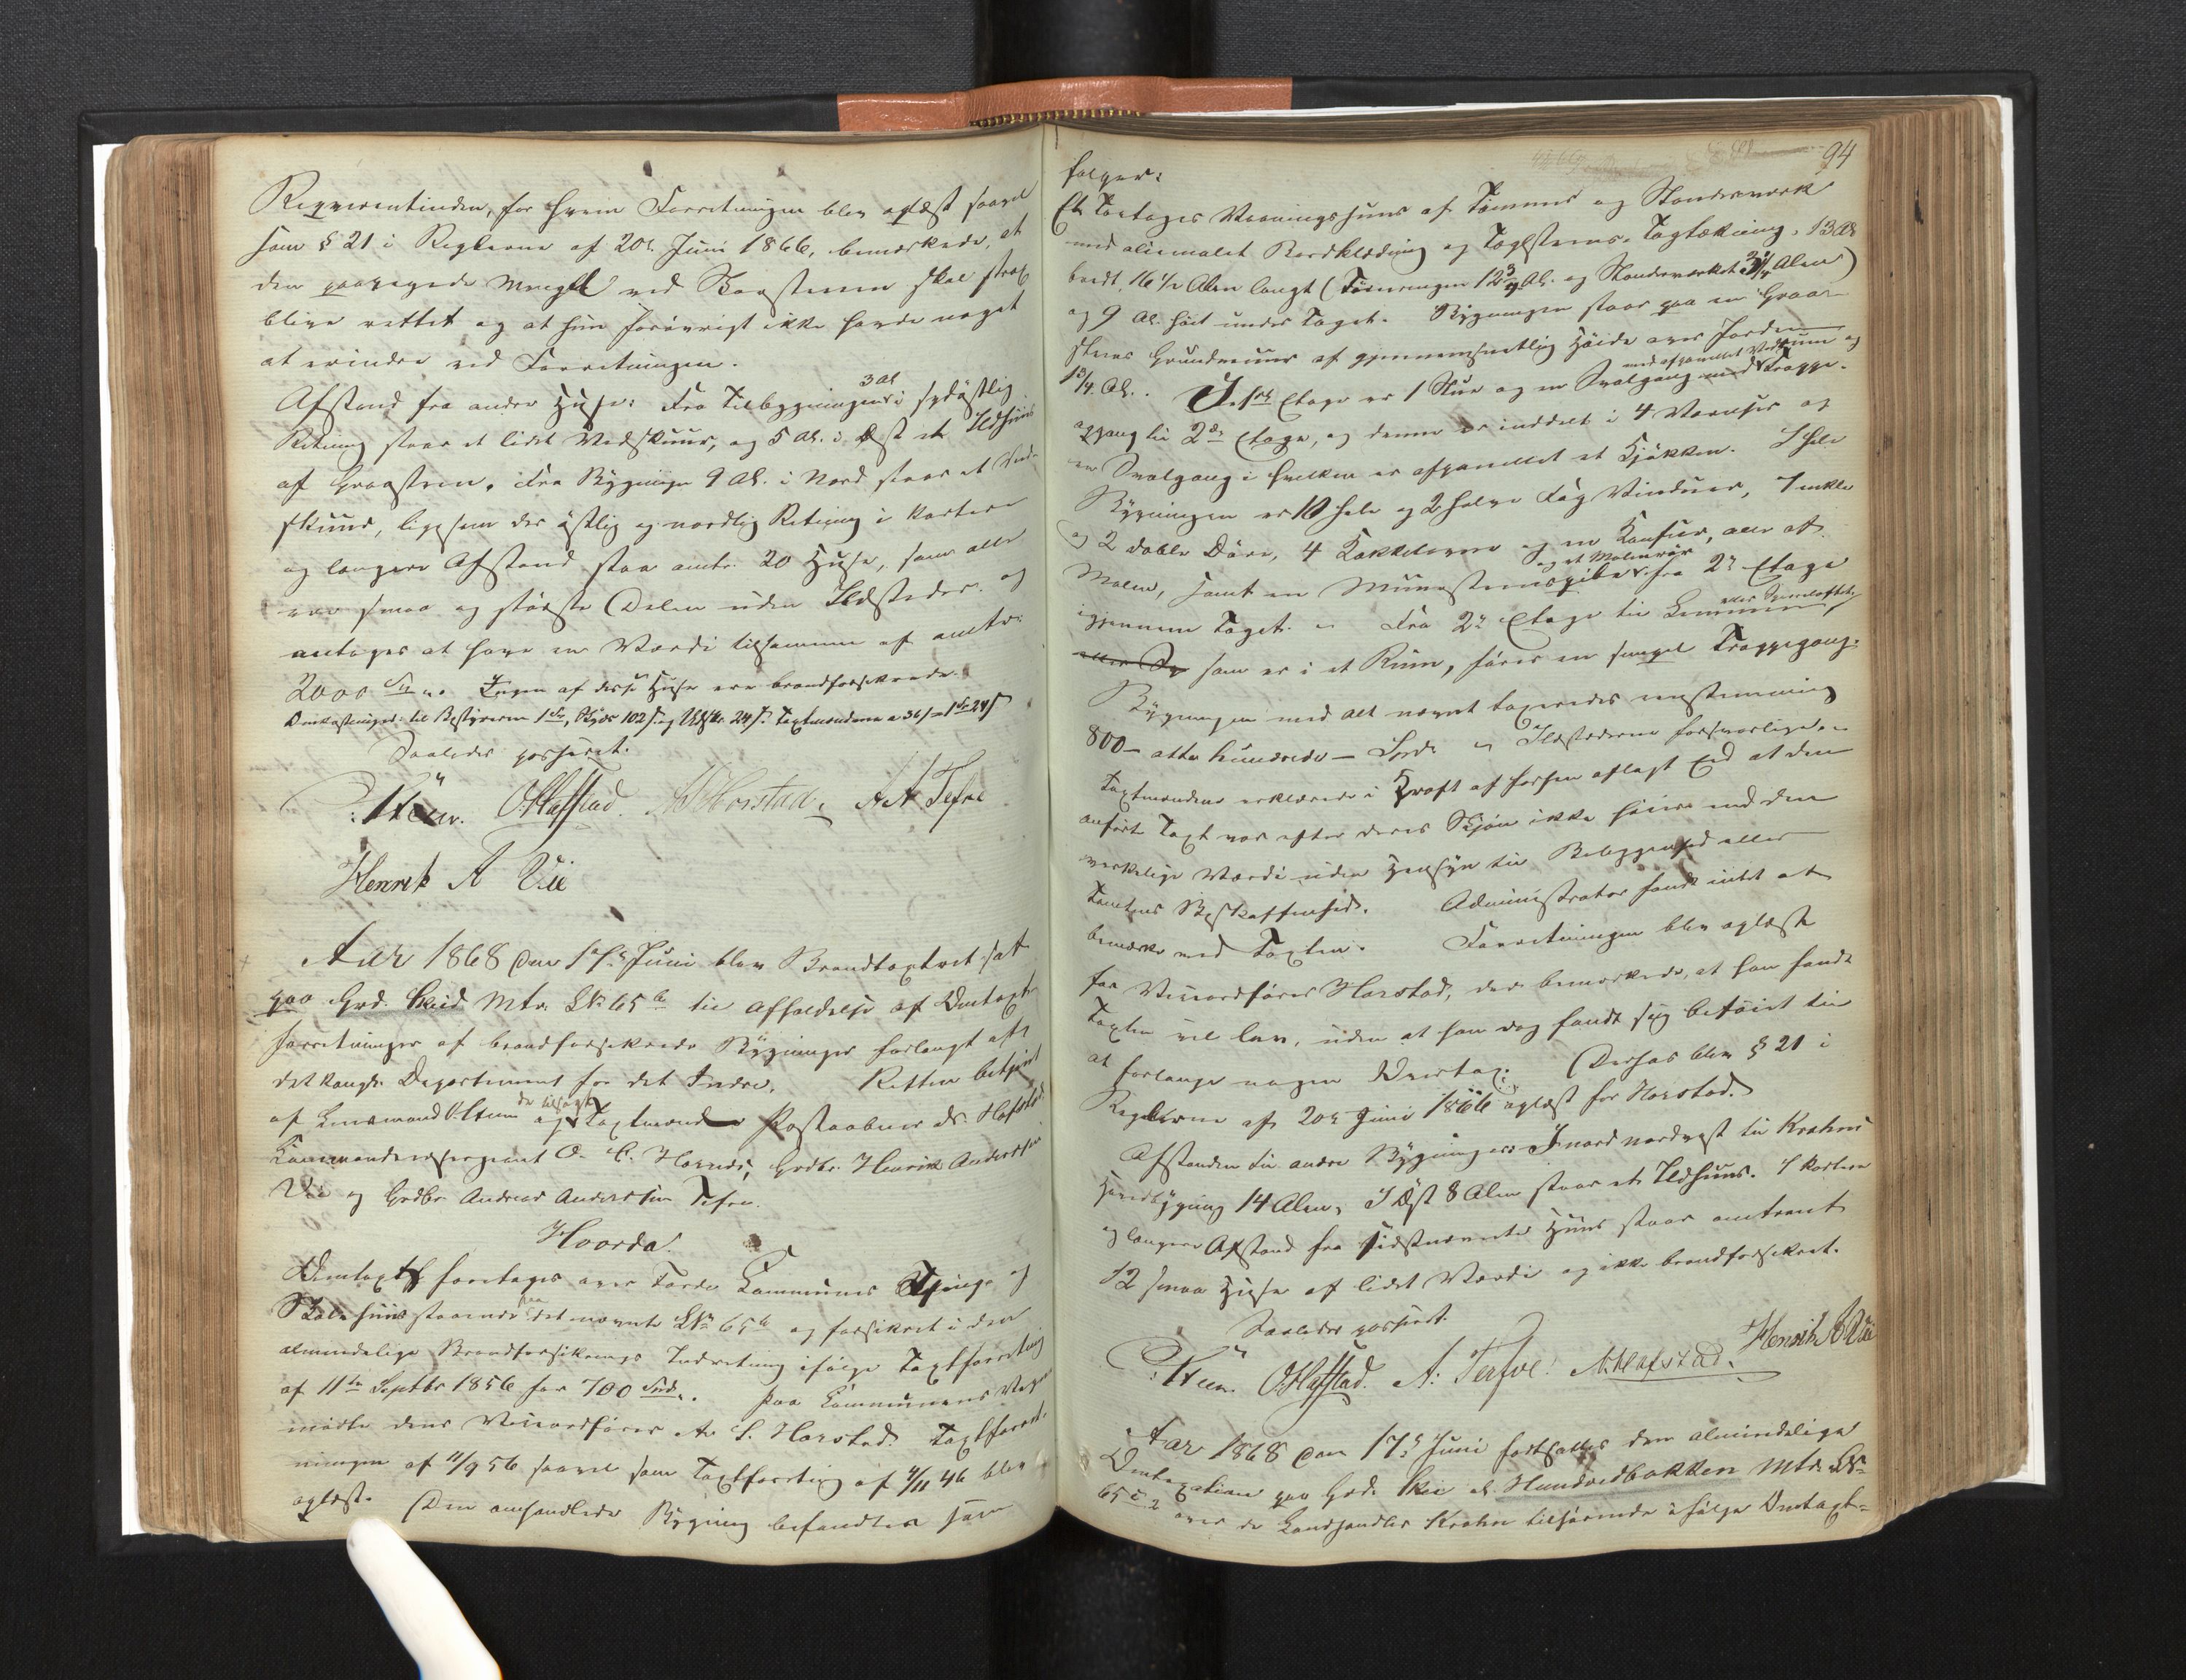 Reqvirentinden, for hvem Forretningen blev oplæst saavel
som § 21 i Reglerne af 20de Juni 1866, bemærkede, at
den paapegede Mangel ved Skorstenen skal strax
blive rettet og at hun forøvrigt ikke havde noget
at erindre ved Forretningen.
Afstand fra andre Huse: Fra Tilbygningen 3 Al i sydøstlig
Retning staar et lidet Vedskuur, og 5 Al. i Øst et Ildhuus
af Graasteen. Fra Bygningen 9 Al. i Nord staar et Ved-
skuur, ligesom der østlig og nordlig Retning i kortere
og længere Afstand staa omtr. 20 Huse, som alle
ere smaa og største Delen uden Ildsteder og
antages at have en Værdi tilsammen af omtr.
2000 Spd. Ingen af disse Huse ere brandforsikrede.
Omkostninger: til Bestyreren 1 Spd, Skyds 102 s. og 24 s. Taxtmændene a 36 s = 1 Spd 24 s
Saaledes passeret.
Stüm. O. Hafstad. A. Horstad. A A Tefre
Henrik A Vie
Aar 1868 den 16de Juni blev Brandtaxtret sat
paa Grd. Skeid Mtr. LNo 65 b til Afholdelse af Omtaxt
forretninger af brandforsikrede Bygninger forlangt af
det kongl. Departement for det Indre. Retten betjent
af Lensmand O. Stüm og de tilsagte Taxtmænd Postaabner N. Hafstad,
Kommandeersergeant O. C. Horneds, Grdbr. Henrik Andersen
Vie og Grdbr Andreas Anderssen Tefre.
Hvorda:
Omtaxt foretages over Førde Kommunes Things og
Skolehuus staaende paa det nævnte LNo 65 b og forsikret i den
almindelige Brandforsikrings Indretning ifølge Taxtforretning
af 11te Septbr 1856 for 700 Spd. Paa Kommunens Vegne
mødte dens Viceordfører A. S. Horstad. Taxtforret-
ningen af 11/9 56 saavel som Taxtforretning af 4/11 46 blev
oplæst. Den omhandlede Bygning befandtes som
94
følger:
Et Toetages Vaaningshuus af Tømmer og Standerværk
med oliemalet Bordklædning og Taglsteens Tagtækning, 13 Al
bredt, 16 1/2 Alen langt (Tømringen 12 3/4 Al. og Standerværket 3 3/4 Alen)
og 9 Al. høit under Taget. Bygningen staar paa en Graa-
steens Grundmuur af gjennemsnitlig Høide over Jorden
1 3/4 Al. I 1ste Etage er 1 Stue og en Svalgang med afpanellet Vedrum og Trappe-
opgang til 2den Etage, og denne er inddelt i 4 Værelser og
en Svalgang i hvilken er afpanellet et Kjøkken. I hele
Bygningen er 10 hele og 2 halve Fag Vinduer, 7 enkle
og 2 doble Døre, 4 Kakkelovne og en Komfur, alle af
Malm, samt en Muurstenspibe og et Malmrør fra 2den Etage
igjennem Taget. Fra 2den Etage til Lemmen eller Spærloftet,
som er i et Rum, fører en simpel Trappegang.
Bygningen med alt nævnt taxeredes enstemmig
800 – otte hundrede – Spd. Ildstederne forsvarlige.
Taxtmændene erklærede i Kraft af forhen aflagt Eed at den
anførte Taxt var efter deres Skjøn ikke høiere end den
virkelige Værdi uden Hensyn til Beliggenhed eller
Tomtens Beskaffenhed. Administrator fandt intet at
bemærke ved Taxten. Forretningen blev oplæst
for Viceordfører Horstad, der bemærkede, at han fandt
Taxten vel lav, uden at han dog fandt sig beføiet til
at forlange nogen Overtax. Derhos blev § 21 i
Reglerne af 20de Juni 1866 oplæst for Horstad.
Afstanden til andre Bygninger: I nord nordvest til Krohns
Hovedbygning 14 Alen, I Øst 8 Alen staar et Ildhuus. I kortere
og længere Afstand fra sidstnævnte Huus staar omtrent
12 smaa Huse af lidet Værdi og ikke brandforsikret.
Saaledes passeret.
Stüm. O. Hafstad. A: Tefre. N. Hafstad. Henrik A Vie
Aar 1868 den 17de Juni fortsattes den almindelige
Omtaxation paa Grd. Skei el. Hundvedbakken Mtr. LNo
65 c 2 over de Landhandler Krohn tilhørende ifølge Omtaxt-